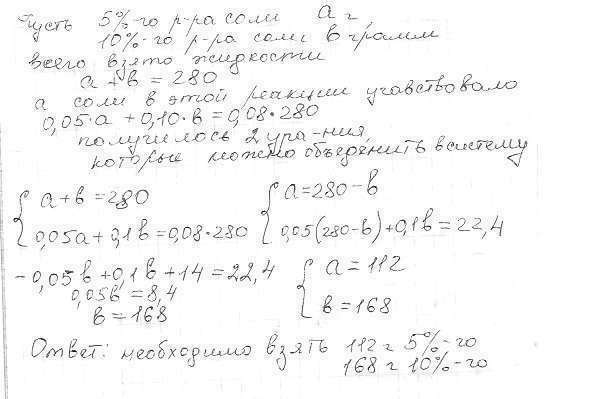 Пусть 5%-го р-ра соли а г,
10%-го р-ра соли в грамм
всего взято жидкости
а + в = 280
а соли в этой реакции учавствовало
0,05·а + 0,10·в = 0,08·280
получилось 2 ура-ния,
которые можно объеденить в систему
{ а + в = 280
0,05а + 0,1в = 0,08·280
{ а = 280 - в
0,05(280 - в) + 0,1в = 22,4
- 0,05в + 0,1в + 14 = 22,4
0,05в = 8,4
в = 168
{ а = 112
в = 168
Ответ: необходимо взять 112 г 5%-го
168 г 10%-го